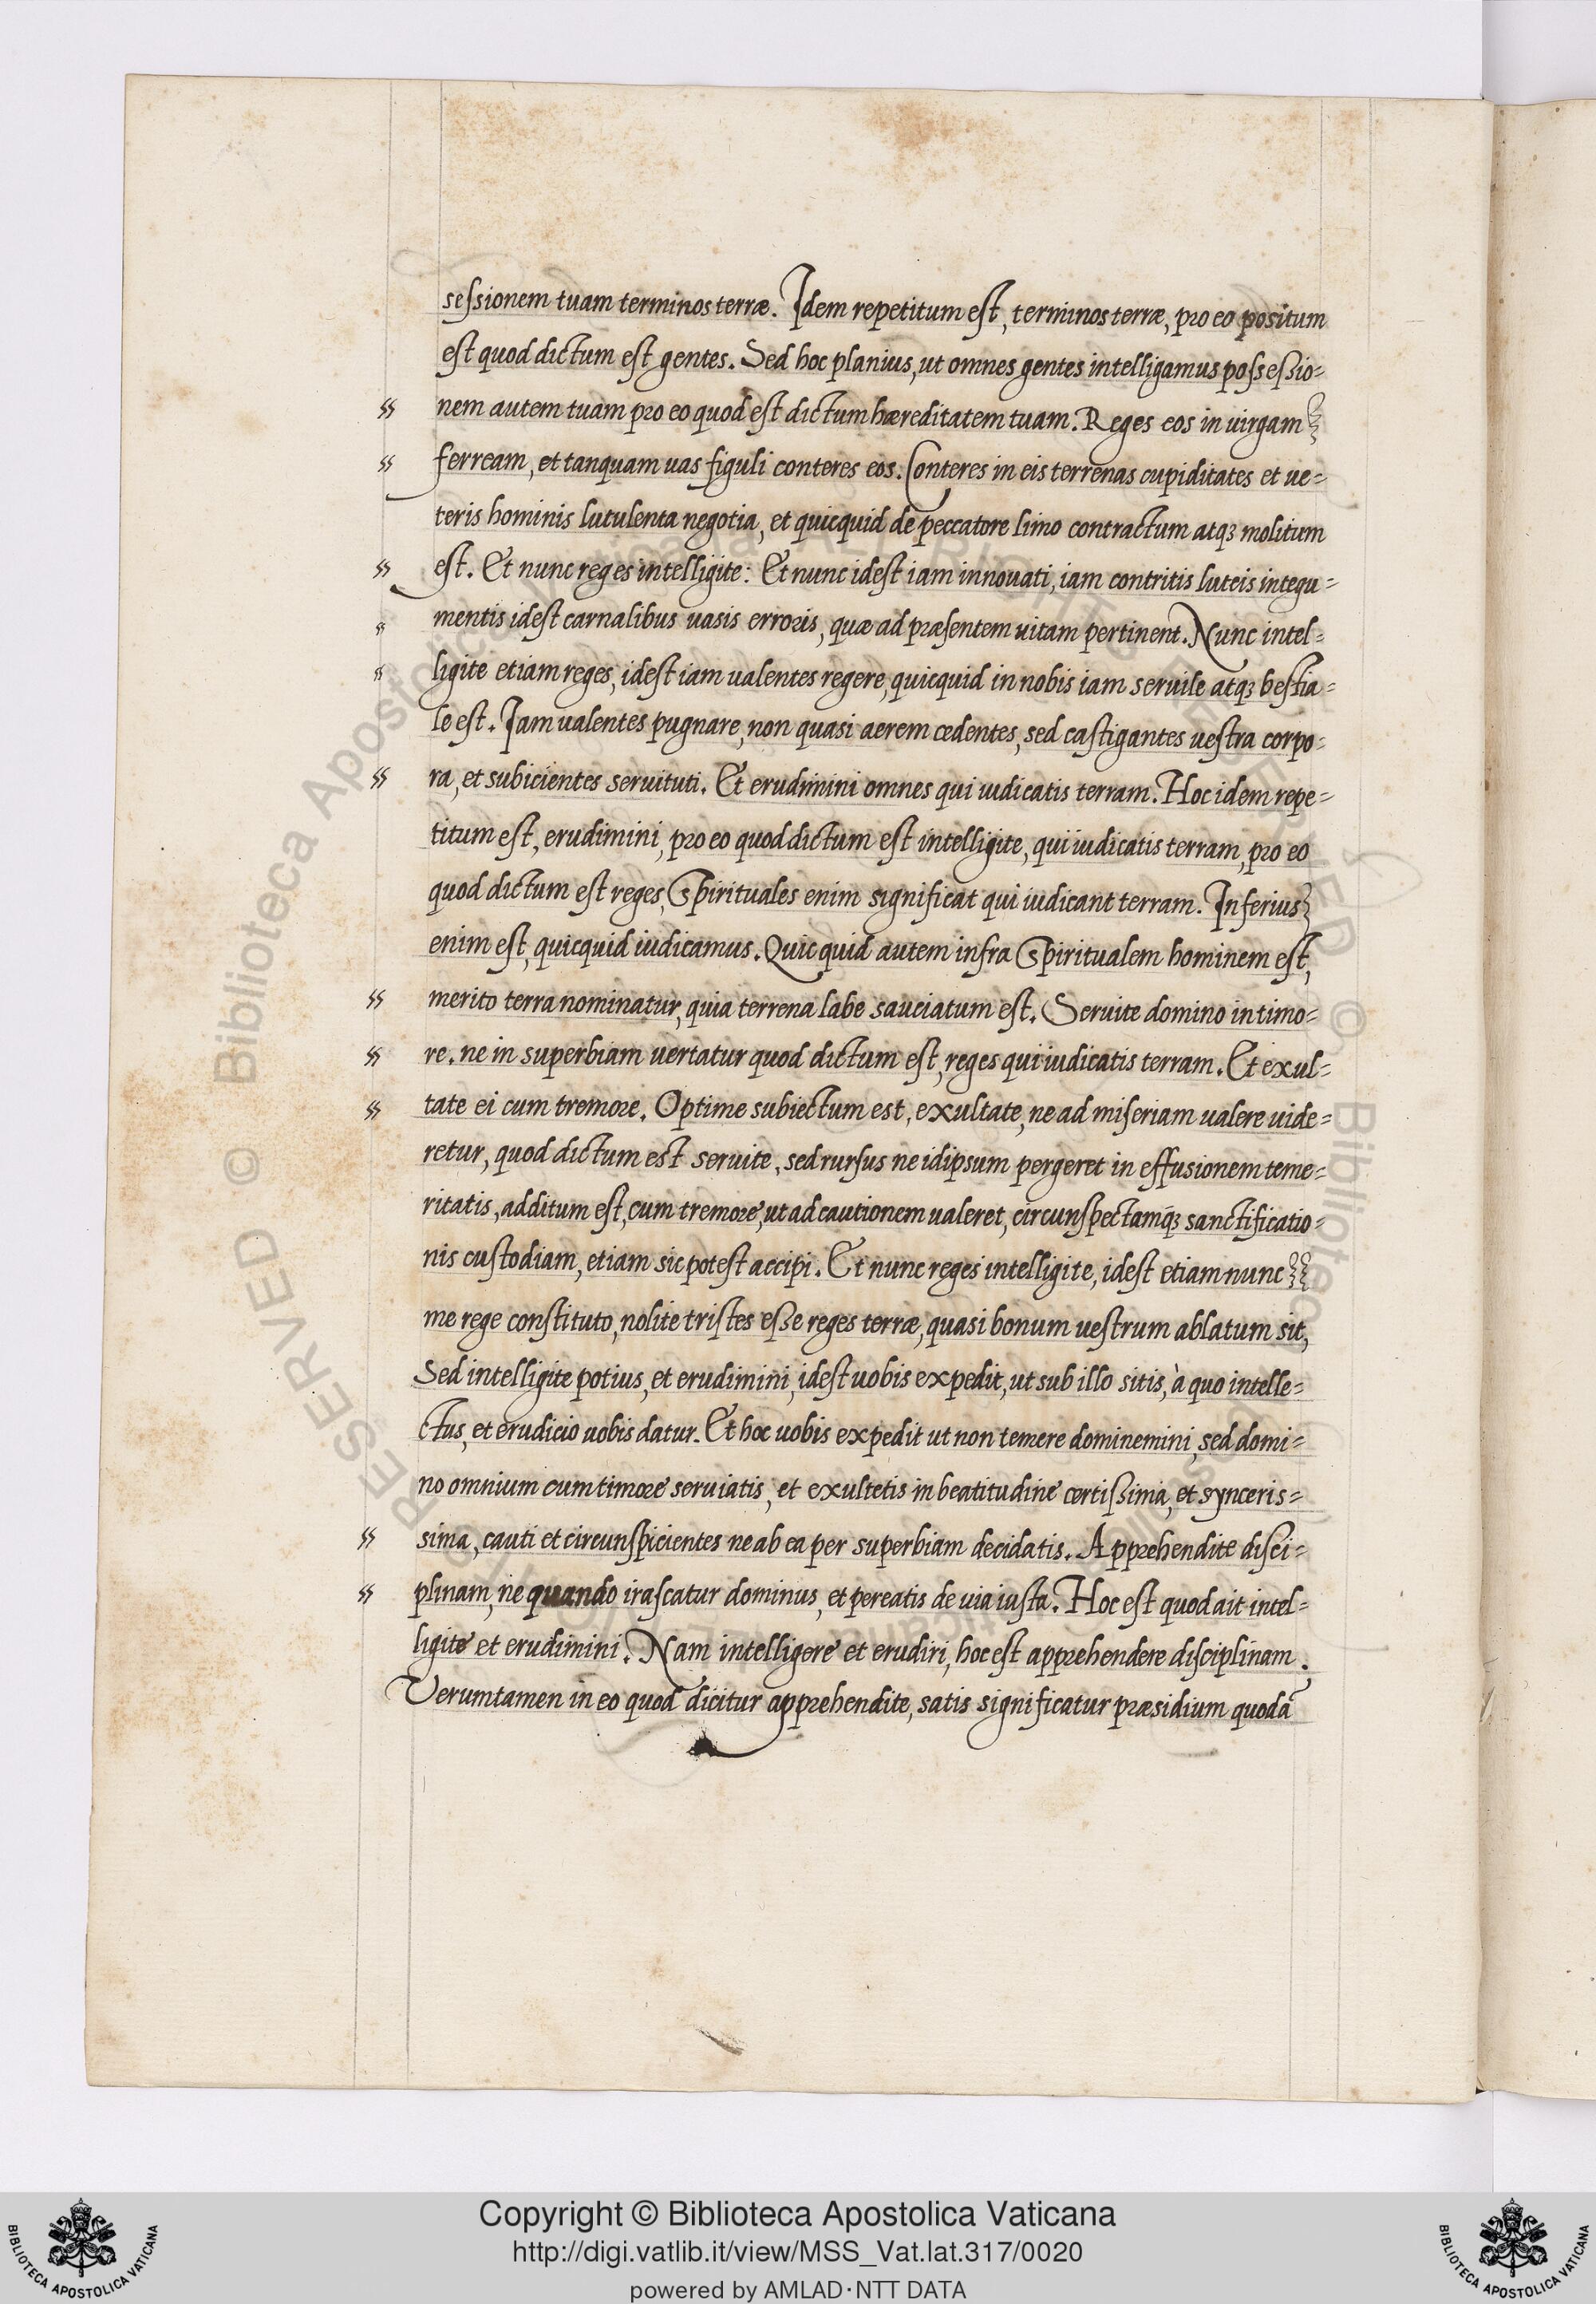 sessionem tuam terminos terræ. Idem repetitum est, terminos terræ, pro eo positum
est quod dictum est gentes. Sed hoc planius, ut omnes gentes intelligamus possessio=
nem autem tuam pro eo quod est dictum hæreditatem tuam. Reges eos in uirgam
ferream, et tanquam uas figuli conteres eos. Conteres in eis terrenas cupiditates et ue=
teris hominis lutulenta negotia, et quicquid de peccatore limo contractum atqꝫ molitum
est. Et nunc reges intelligite: Et nunc idest iam innouati, iam contritis luteis integu=
mentis idest carnalibus uasis erroris, quæ ad præsentem uitam pertinent. Nunc intel=
ligite etiam reges, idest iam ualentes regere, quicquid in nobis iam seruile atqꝫ bestia=
le est. Iam ualentes pugnare, non quasi aerem cedentes, sed castigantes uestra corpo=
ra, et subicientes seruituti. Et erudimini omnes qui iudicatis terram. Hoc idem repe=
titum est, erudimini, pro eo quod dictum est intelligite, qui iudicatis terram, pro eo
quod dictum est reges, Spirituales enim significat qui iudicant terram. Inferius
enim est, quicquid iudicamus. Quicquid autem infra Spiritualem hominem est,
merito terra nominatur, quia terrena labe sauciatum est. Seruite domino in timo=
re. ne in superbiam uertatur quod dictum est, reges qui iudicatis terram. Et exul=
tate ei cum tremore. Optime subiectum est, exultate, ne ad miseriam ualere uide=
retur, quod dictum est seruite, sed rursus ne idipsum pergeret in effusionem teme=
ritatis, additum est, cum tremore, ut ad cautionem ualeret, circunspectamqꝫ sanctificatio=
nis custodiam, etiam sic potest accipi. Et nunc reges intelligite, idest etiam nunc
me rege constituto, nolite tristes esse reges terræ, quasi bonum uestrum ablatum sit,
Sed intelligite potius, et erudimini, idest uobis expedit, ut sub illo sitis, à quo intelle=
ctus, et erudicio uobis datur. Et hoc uobis expedit ut non temere dominemini, sed domi=
no omnium cum timore seruiatis, et exultetis in beatitudine certissima, et synceris=
sima, cauti et circunspicientes ne ab ea per superbiam decidatis. Apprehendite disci=
plinam, ne quando irascatur dominus, et pereatis de uia iusta. Hoc est quod ait intel=
ligite et erudimini. Nam intelligere et erudiri, hoc est apprehendere disciplinam.
Verumtamen in eo quod dicitur apprehendite, satis significatur præsidium quodã
Copyright © Biblioteca Apostolica Vaticana
http://digi.vatlib.it/view/MSS_Vat.lat.317/0020
powered by AMLAD·NTT DATA
BIBLIOTECA APOSTOLICA VATICANA
BIBLIOTECA APOSTOLICA VATICANA